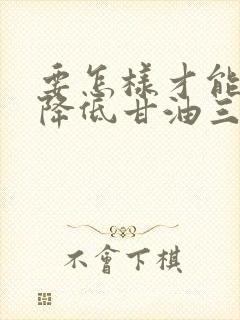 要怎樣才能
降低甘油三
不會下棋